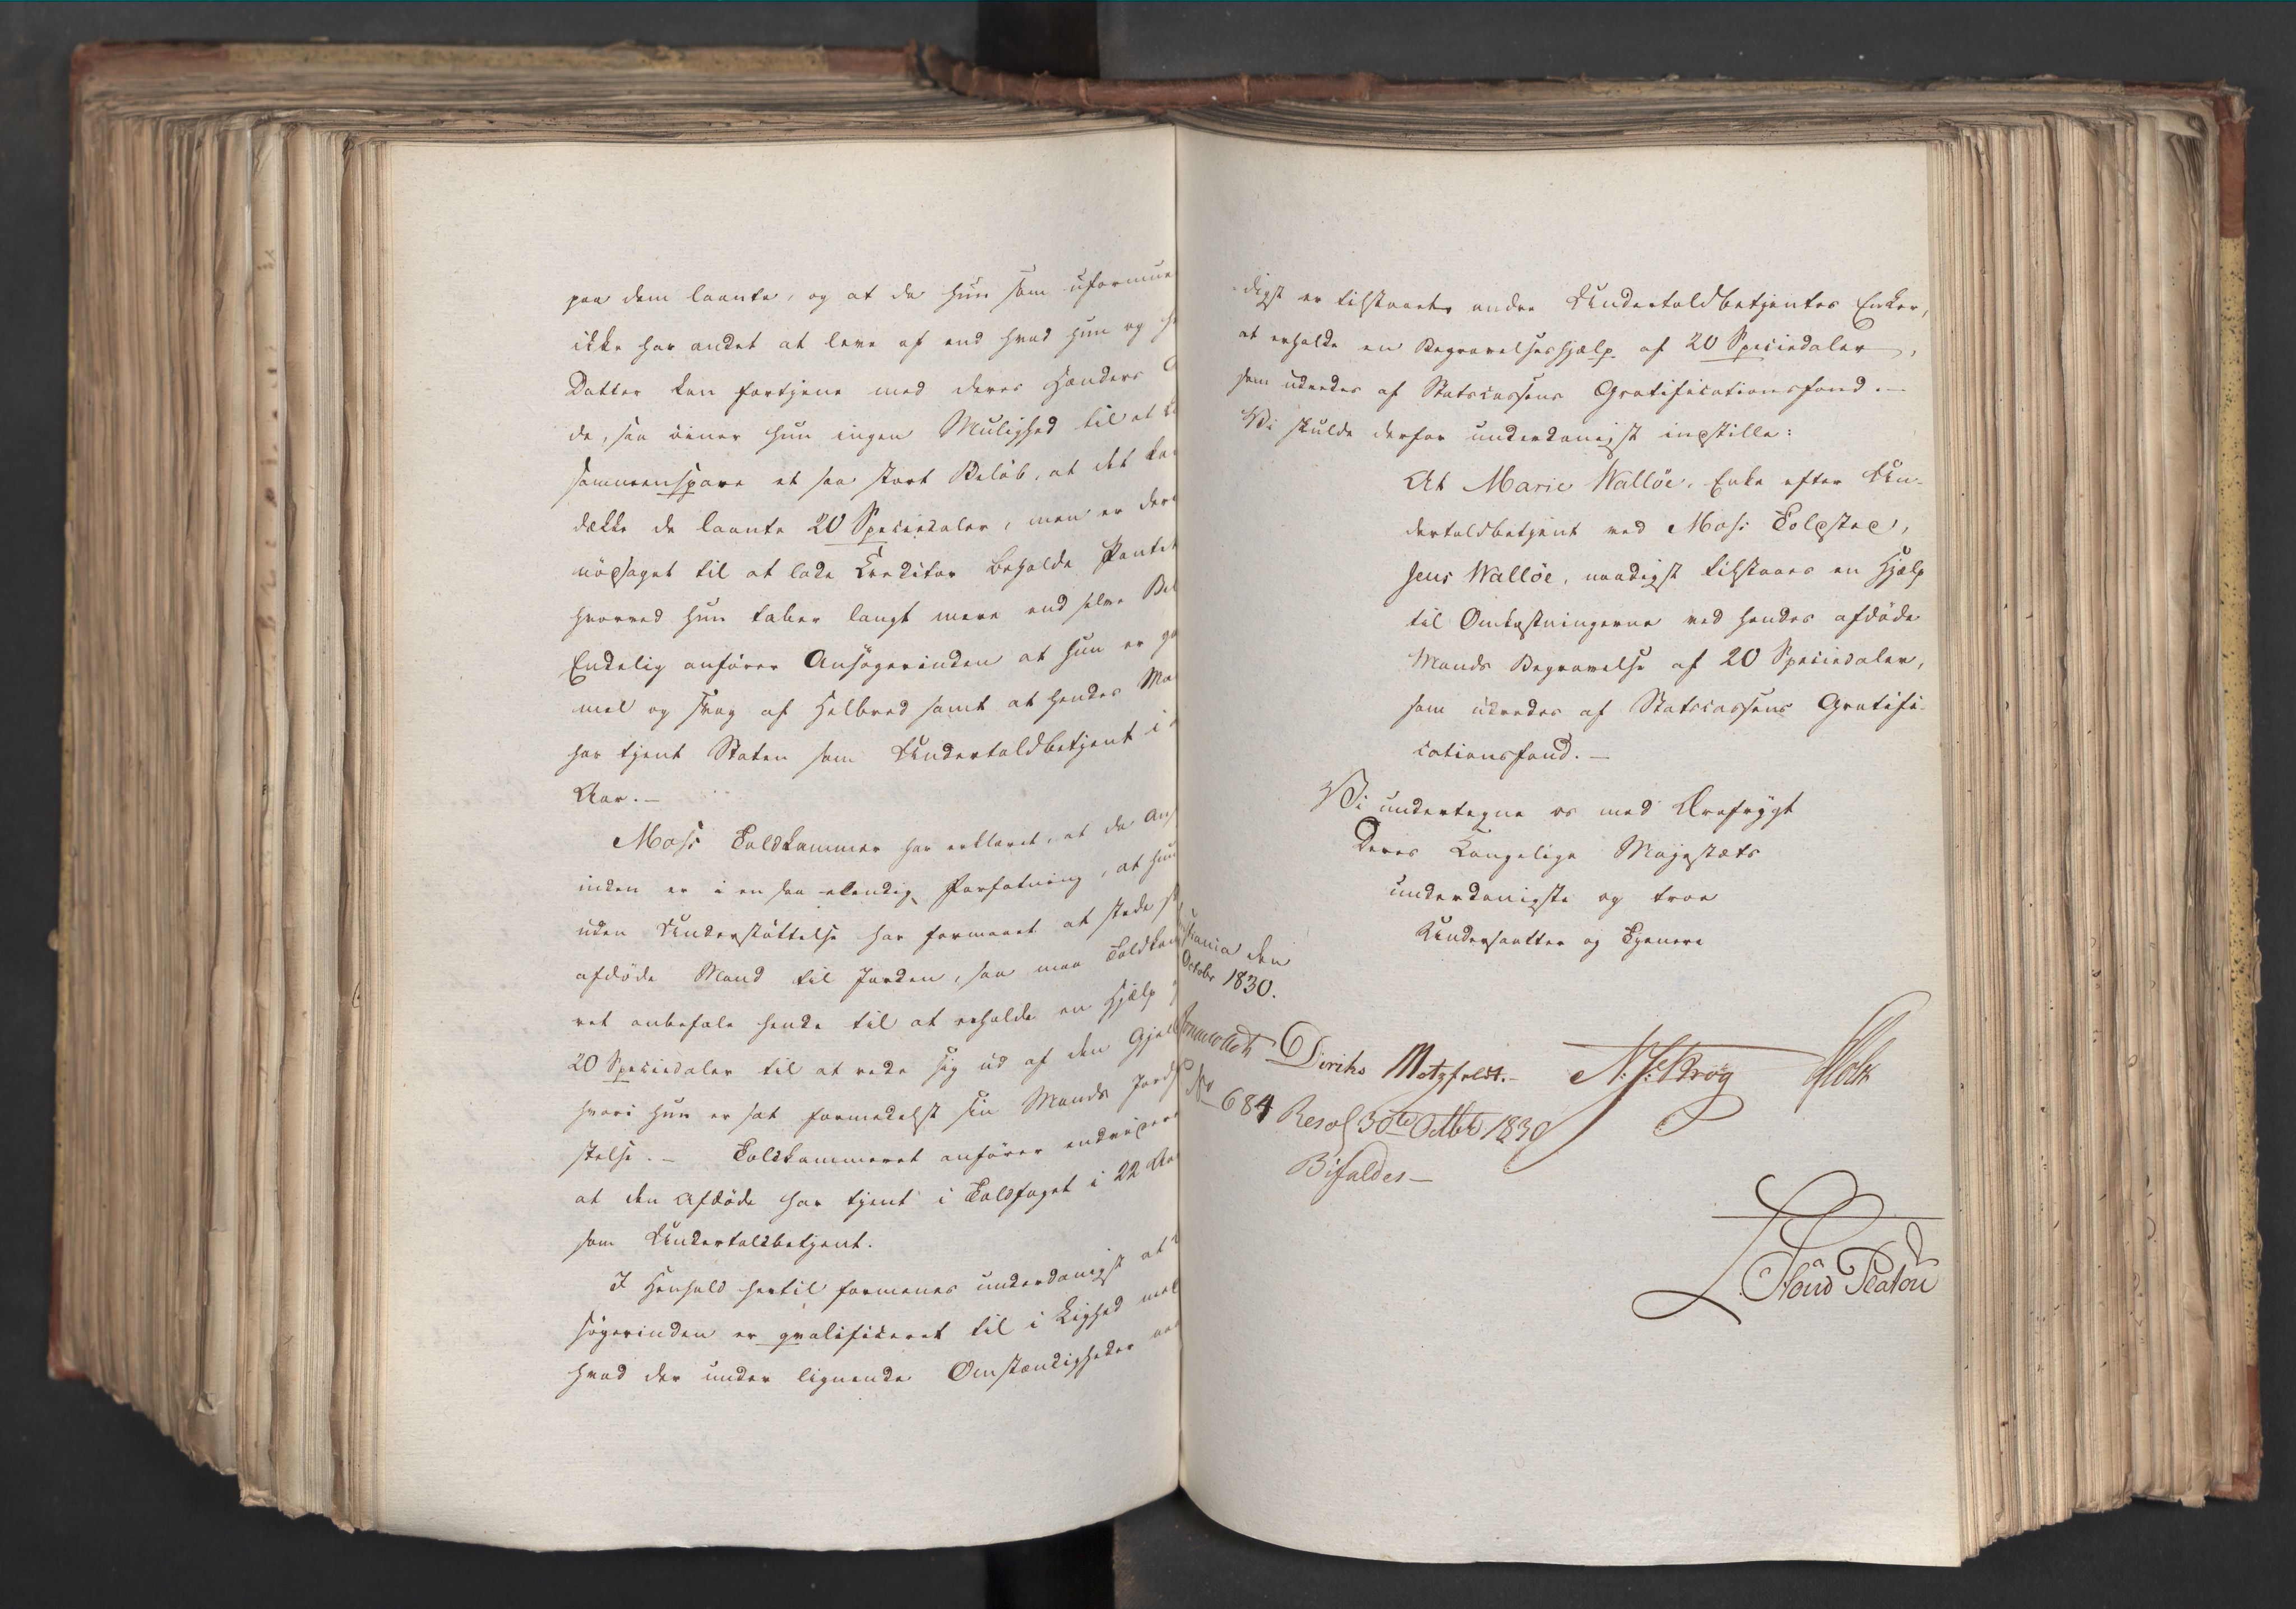 paa dem laante, og at da hun som uformue
ikke har andet at leve af end hvad hun og
Datter kan fortjene med deres Hænders
de, saa øiner hun ingen Mulighed til at
sammenspare et saa stort Beløb, at det kan
dække de laante 20 Speciedaler, men er der
nødsaget til at lade Creditor beholde Pantet
hvorved hun taber langt mere end selve Bel
Endelig anfører Ansøgerinden at hun er ga
mel og svag af Helbred samt at hendes Ma
har tjent Staten som Undertoldbetjent i
Aar.—
Moss Toldkammer har erklæret, at da Ans
inden er i en saa elendig Forfatning, at hun
uden Understøttelse har formaaet at stede
afdøde Mand til Jorden, saa maa Toldkam
ret anbefale hende til at erholde en Hjelp
20 Speciedaler til at rede sig ud af den Gjeld
hvori hun er sat formedelst sin Mands Jords
stelse.— Toldkammeret anfører endvidere
at den Afdøde har tjent i Toldfaget i 22 Aar
som Undertoldbetjent.
I Henhold hertil formenes underdanigst at
søgerinden er qvalificeret til i Lighed med
hvad der under lignende Omstændigheder naa
-digst er tilstaaet andre Undertoldbetjentes Enker,
at erholde en Begravelseshjælp af 20 Speciedaler,
som udredes af Statscassens Gratificationsfond.—
Vi skulde derfor underdanigst indstille:
At Marie Walløe, Enke efter Un-
dertoldbetjent ved Moss Toldsted,
Jens Walløe, naadigst tilstaaes en Hjelp
til Omkostningerne ved hendes afdøde
Mands Begravelse af 20 Speciedaler,
som udredes af Statscassens Gratifi-
cationsfond.—
Vi undertegne os med Ærefrygt
Deres Kongelige Majestæts
underdanigste og troe
Undersaatter og Tjenere
stiania den
October 1830.
Diriks Motzfeldt.— Krog Holst
No 684 Resol 30te Octbr. 1830
Bifaldes—